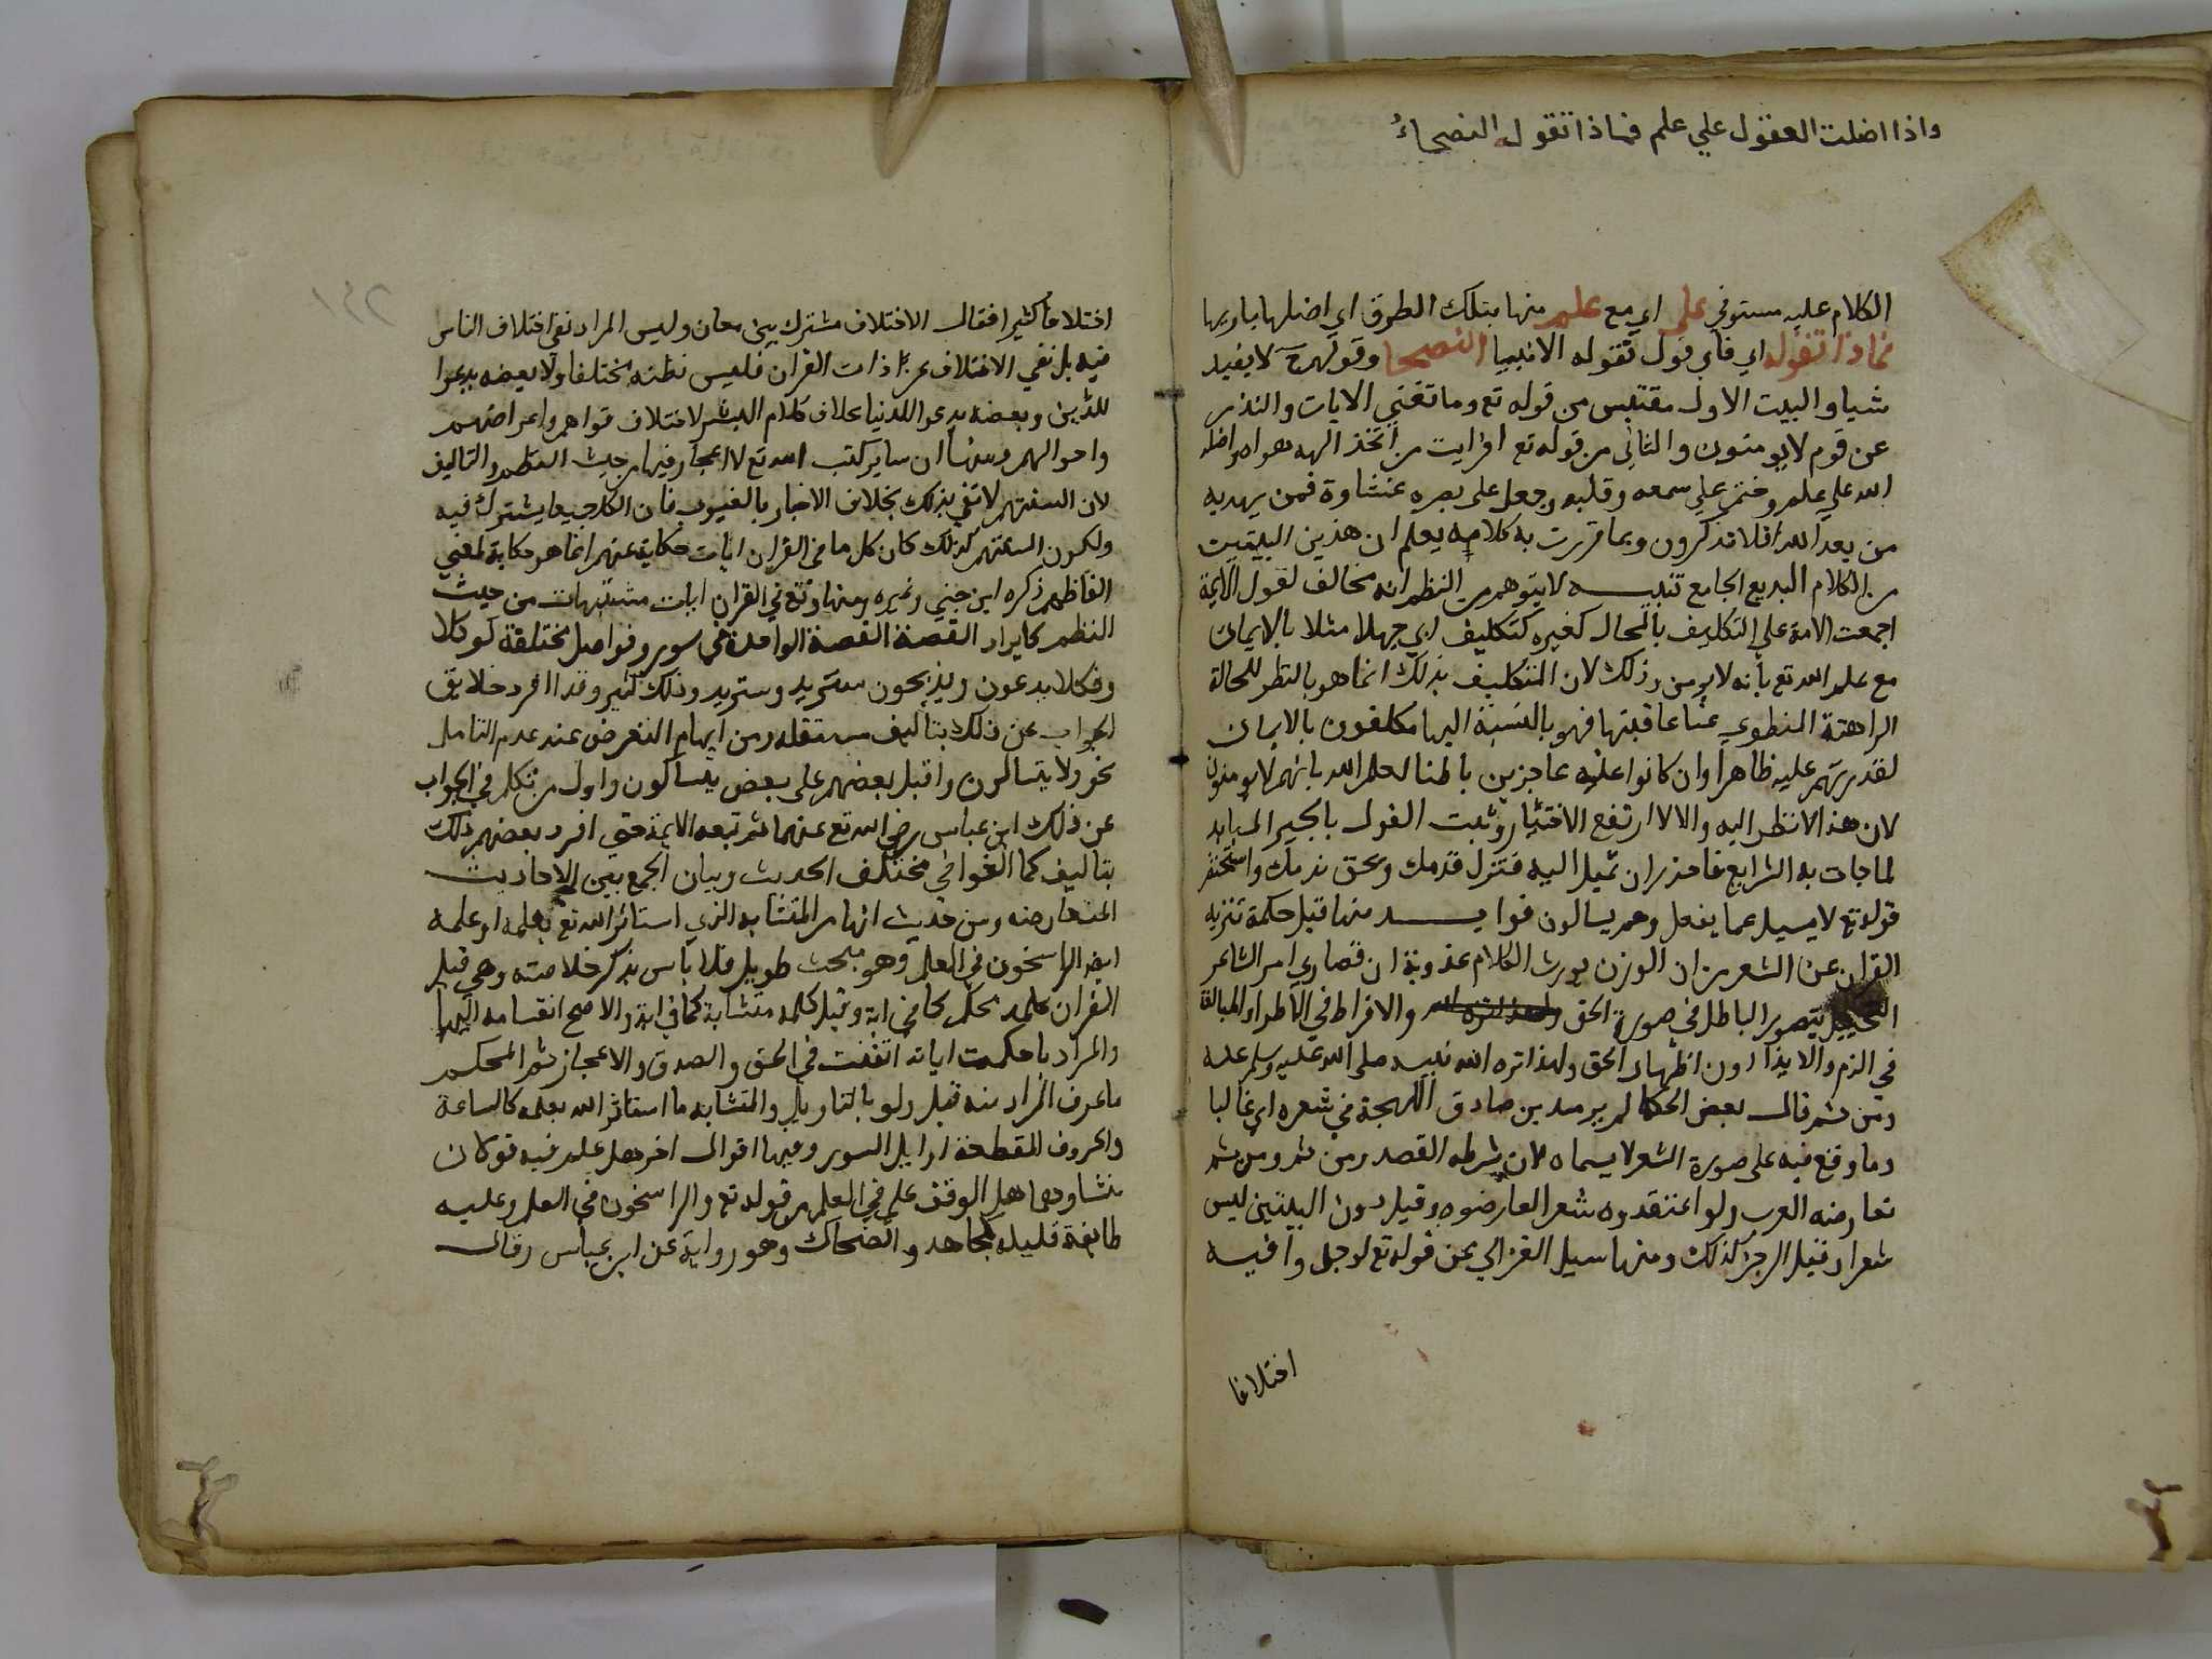 واذا اضلت العقول علي علم فماذا تقوله النصحاءُ
الكلام عليه مستوفي علي اي مع علم منها بتلك الطرق اي اضلها باريها
فماذا تقوله اي فاي قول تقوله الانبيا النصحا وقولهم ح لا يفيد
شيا والبيت الاول مقتبس من قوله تع وما تغني الايات والنذر
عن قوم لا يومنون والثاني من قوله تع افرايت من اتخذ الهه هواه واضله
الله علي علم وختم علي سمعه وقلبه وجعل على بصره غشاوة فمن يهديه
من بعد الله افلا تذكرون وبما قررت به كلامه يعلم ان هذين البيتين
من الكلام البديع الجامع تنبيه لا يتوهم من النظم انه مخالف لقول الايمة
اجمعت الامة علي التكليف بالمحال كغيره كتكليف ابي جهل مثلا بالايمان
مع علم الله تع بانه لا يومن وذلك لان التكليف بذلك انما هو بالنظر للحالة
الراهنة المنطوي عنا عاقبتها فهو بالنسبة اليها مكلفون بالايمان
لقدرتهم عليه ظاهرا وان كانوا عنه عاجزين باطنا لعلم الله بانهم لا يومنون
لان هذا لا نظر اليه والا لارتفع الاختيار وثبت القول بالجبر المباين
لما جات به الشرايع فاحذر ان تميل اليه فتزل قدمك ويحق ندمك واستحضر
قوله تع لا يسيل عما يفعل وهم يسالون فوايد منها قيل حكمة تنزيه
القران عن الشعر من ان الوزن يورث الكلام عذوبة ان قصاري امر الشاعر
التخييل بتصور الباطل في صورة الحق والافراط في الاطراء والمبالغة
في الذم والايذا دون اظهار الحق ولهذا نزه الله نبيه صلى الله عليه وسلم عنه
ومن ثم قال بعض الحكما لم ير متدين صادق اللهجة في شعره اي غالبا
وما وقع فيه على صورة الشعر لا يسماه لان شرطه القصد ومن ثم ومن ثم
تعارضه العرب ولو اعتقدوه شعرا لعارضوه وقيل دون البيتين ليس
شعرا وقيل الرجز كذلك ومنها سيل الغزالي عن قوله تع لوجدوا فيه
اختلافا
اختلافا كثيرا فقال الاختلاف مشترك بين معان وليس المراد نفي اختلاف الناس
فيه بل نفي الاختلاف عن ذات القران فليس نظمه مختلفا ولا بعضه يدعوا
للدين وبعضه يدعوا للدنيا بخلاف كلام البشر لاختلاف قواهم واغراضهم
واحوالهم ومنها ان ساير كتب الله تع لا اعجاز فيها من حيث النظم والتاليف
لان السنتهم لا تفي بذلك بخلاف الاخبار بالغيوب فان الكل جميعا يشترك فيه
ولكون السنتهم كذلك كان كل ما في القران ايات حكاية عنهم انما هو حكاية لمعني
الفاظهم ذكره ابن جني وغيره ومنها وقع في القران ايات مشتبهات من حيث
النظم كايراد القصة القصة الواحدة في سور وفواصل مختلفة لو كلا
وفكلا يدعون ويذبحون سنزيد وسنزيد وذلك كثير وقد افرد خلايق
الجواب عن ذلك بتاليف مستقله ومن ايهام التعرض عند عدم التامل
نحو ولا يتسالون واقبل بعضهم على بعض يتساءلون واول من تكلم في الجواب
عن ذلك ابن عباس رضي الله تع عنهما ثم تبعه الايمة حتى افرد بعضهم ذلك
بتاليف كما الفوا في مختلف الحديث وبيان الجمع بين الاحاديث
المتعارضه ومن حديث انها من المتشابه الذي استاثر الله تع بعلمه او علمه
ايضا الراسخون في العلم وهو مبحث طويل فلا باس بذكر خلاصته وهي قيل
القران كله محكم كما في اية وقيل كله متشابه كما في اية والاصح انقسامه اليهما
والمراد باحكمت اياته اتقنت في الحق والصدق والاعجاز ثم المحكم
ما عرف المراد منه قيل ولو بالتاويل والمتشابه ما استاثر الله بعلمه كالساعة
والحروف المقطعة اوايل السور وفيها اقوال اخر هل علم فيه قولان
منشاوهما هل الوقف على في العلم من قوله تع والراسخون في العلم وعليه
طايفة قليله كمجاهد والضحاك وهو رواية عن ابن عباس وقال
١٤٢